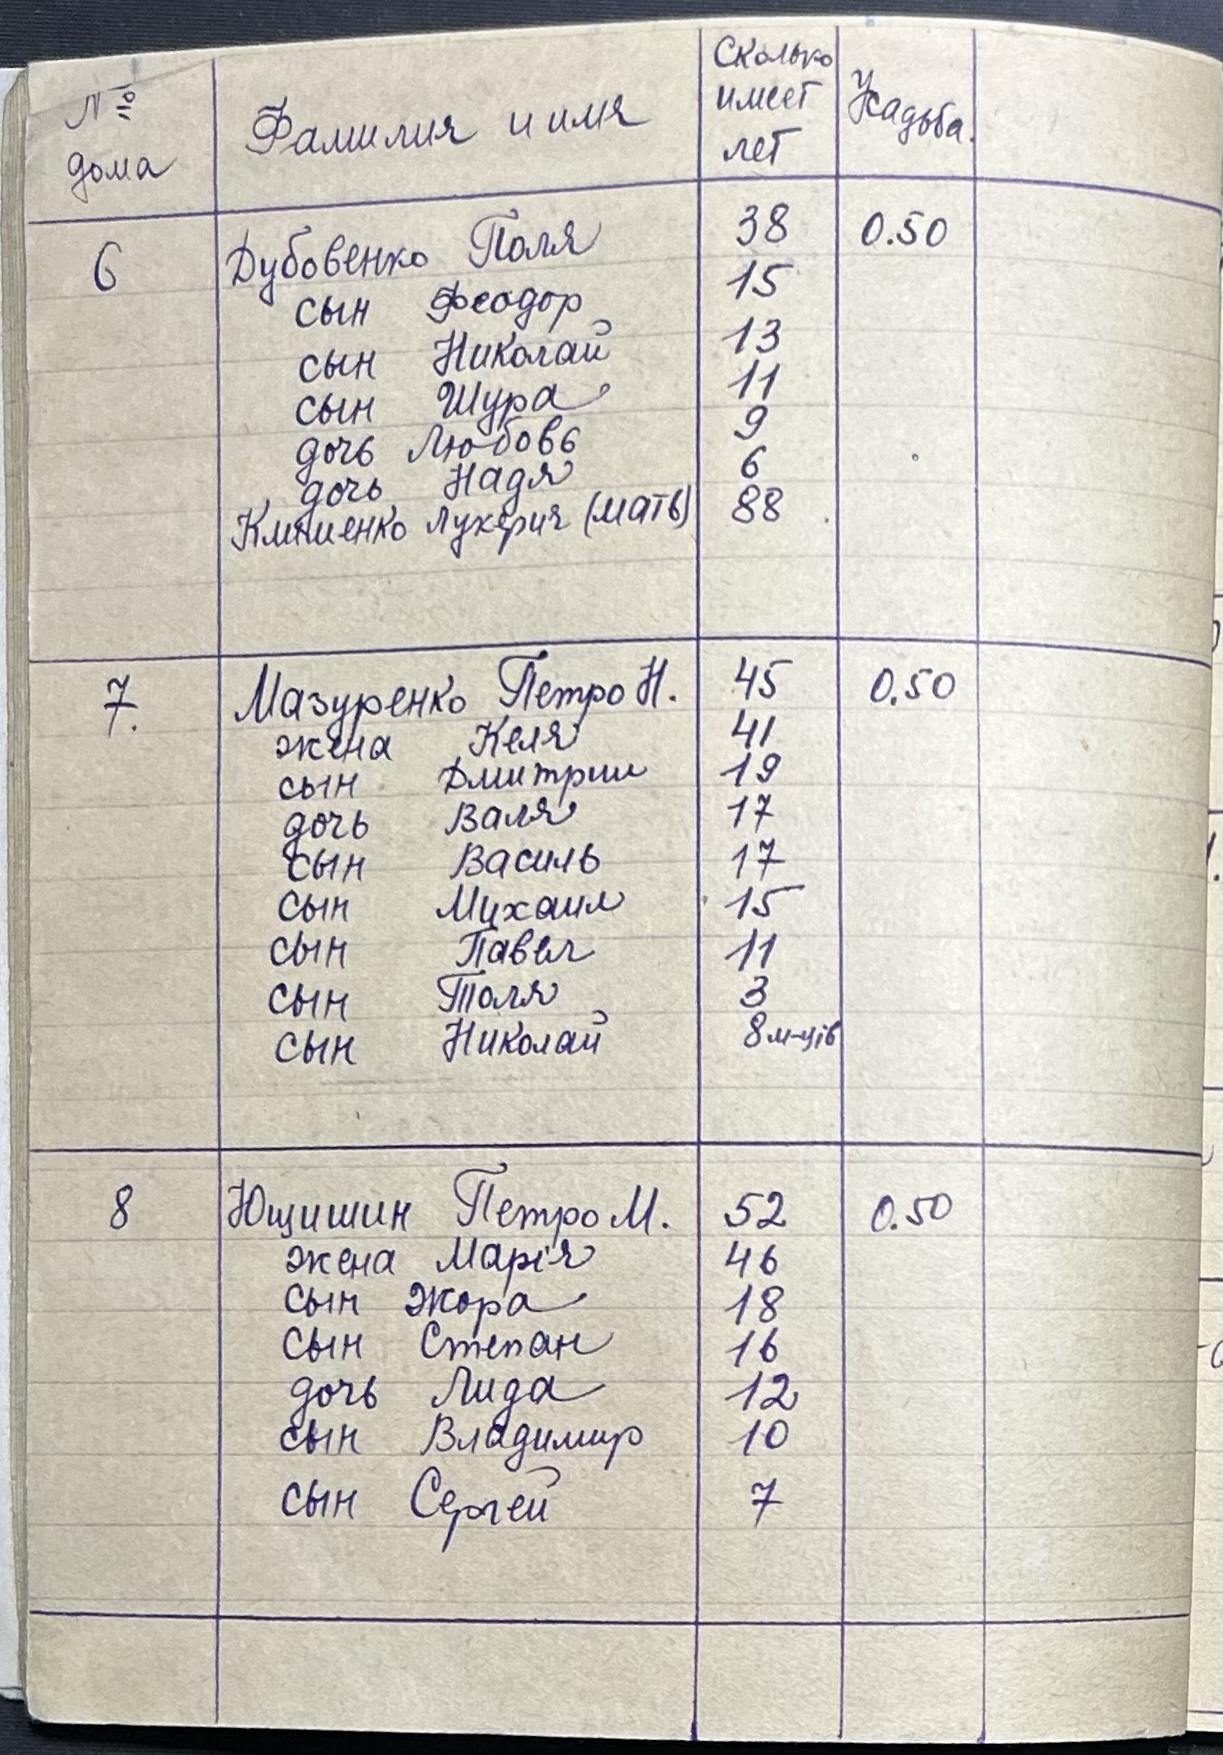 № дома	Фамилия и имя	Сколько имеет лет	Усадьба.
6	Дубовенко Поля	38	0.50
сын Феодор	15
сын Николай	13
сын Шура	11
дочь Любовь	9
дочь Надя	6
Лукерия (мать)	88
7.	Мазуренко Петро Н.	45	0.50
жена Келя	41
сын Дмитрии	19
дочь Валя	17
сын Василь	17
сын Михаил	15
сын Павел	11
сын Толя	3
сын Николай	8 м-ців
8	Ющишин Петро М.	52	0.50
жена Марія	46
сын Жора	18
сын Степан	16
дочь Лида	12
сын Владимир	10
сын Сергей	7